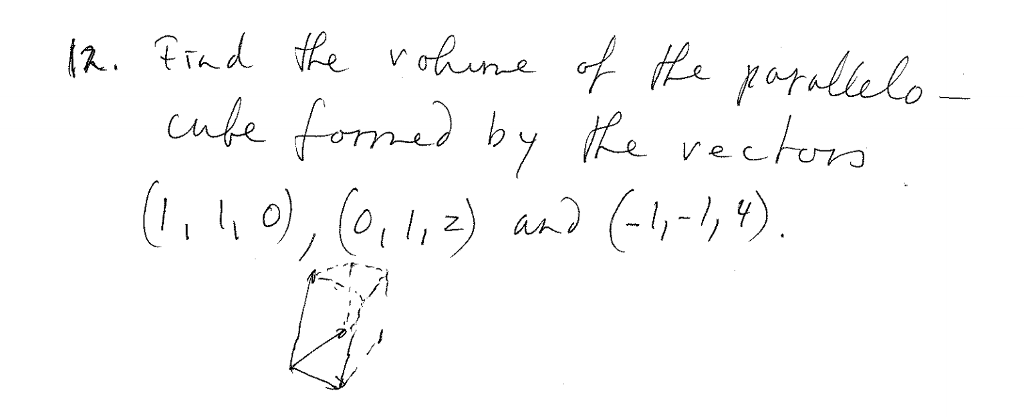 12. Find the volume of the parallelo-
cube formed by the vectors
(1, 1, 0), (0, 1, 2) and (-1, -1, 4).